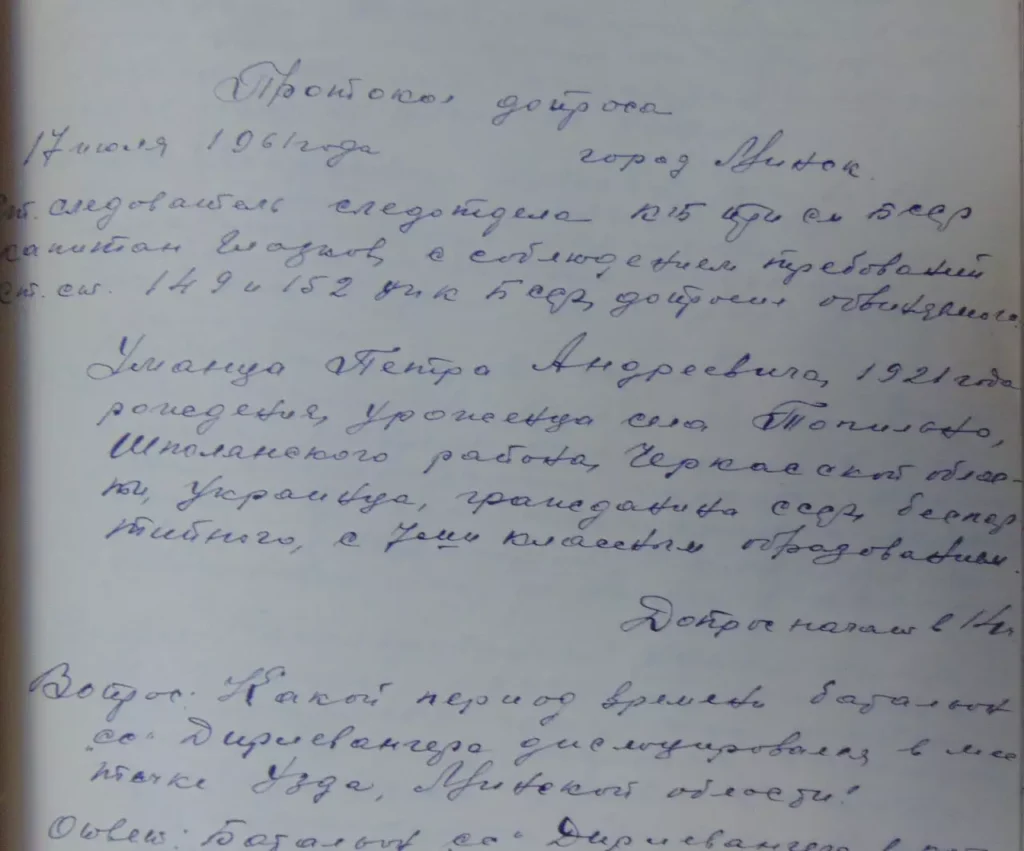 Протокол допроса
17 июля 1961 года город Минск.
Ст. следователь следотдела КГБ при СМ БССР
капитан Глазков, с соблюдением требований
ст.ст. 149 и 152 УПК БССР, допросил обвиняемого
Уманца Петра Андреевича, 1921 года
рождения, уроженца села Топильно,
Шполанского района, Черкасской облас-
ти, украинца, гражданина СССР, беспар
тийного, с 7ми классным образованием.
Допрос начат в 14ч
Вопрос: Какой период времени батальон
"СС" Дирлевангера дислоцировался в мес
течке Узда, Минской области?
Ответ: Батальон СС" Дирлевангера в